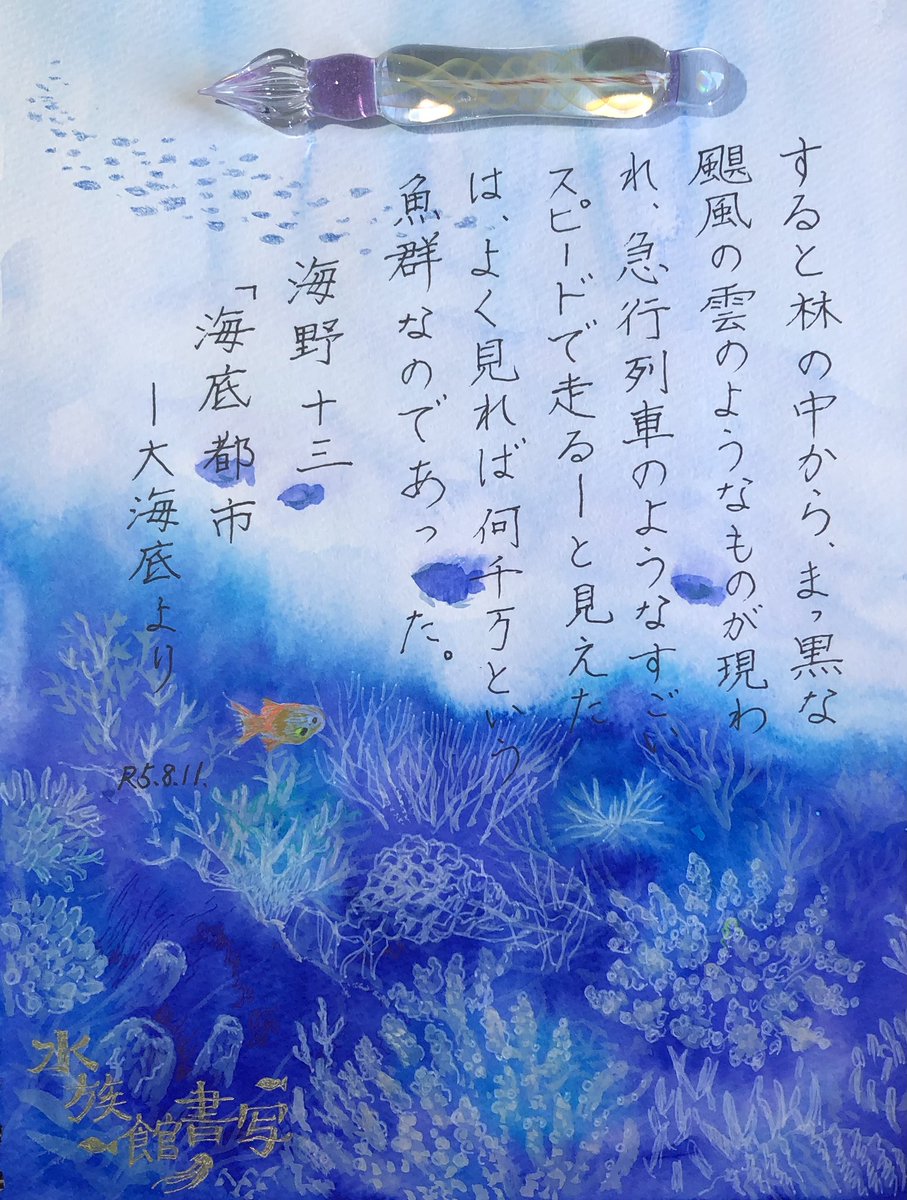 すると林の中から、まっ黒な
颶風の雲のようなものが現わ
れ、急行列車のようなすごい
スピードで走るーと見えた
は、よく見れば何千万という
魚群なのであった。
海野十三
「海底都市
ー大海底より
R5.8.11.
水族館書写